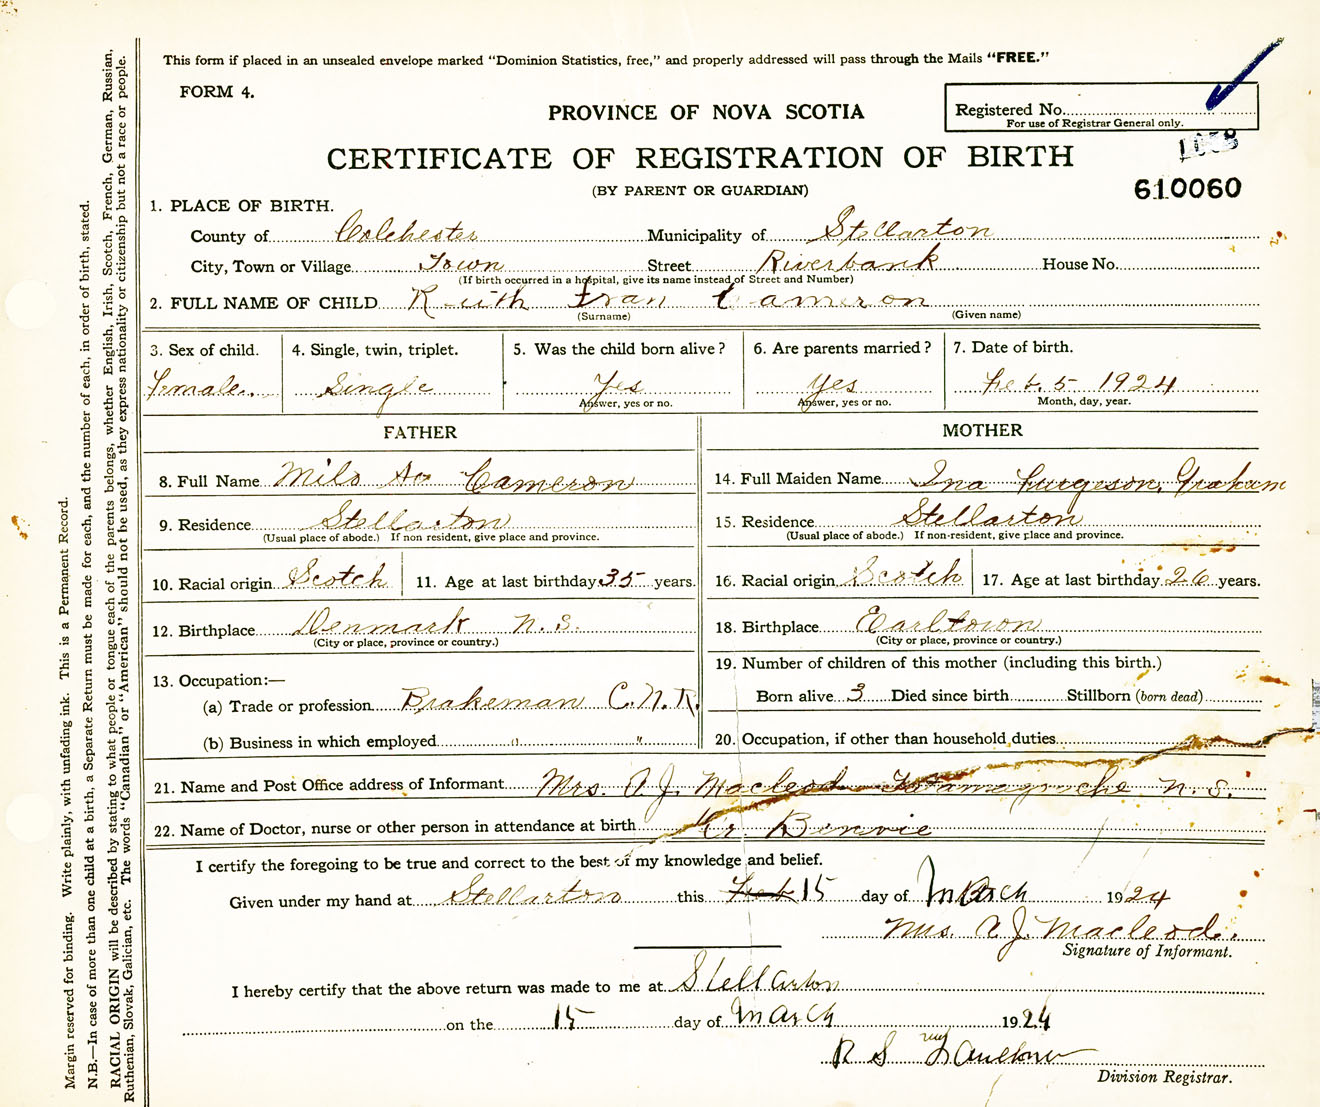 This form if placed in an unsealed envelope marked "Dominion Statistics, free," and properly addressed will pass through the Mails "FREE."
FORM 4.
PROVINCE OF NOVA SCOTIA
Registered No.
For use of Registrar General only.
CERTIFICATE OF REGISTRATION OF BIRTH
(BY PARENT OR GUARDIAN)
610060
1. PLACE OF BIRTH.
County of Colchester Municipality of Stellarton
City, Town or Village Town Street Riverbank House No.
(If birth occurred in a hospital, give its name instead of Street and Number)
2. FULL NAME OF CHILD Ruth Fran Cameron
(Surname) (Given name)
3. Sex of child. 4. Single, twin, triplet. 5. Was the child born alive? 6. Are parents married? 7. Date of birth.
female Single Yes Yes Feb. 5 1924
Answer, yes or no. Answer, yes or no. Month, day, year.
FATHER MOTHER
8. Full Name Milo Cameron 14. Full Maiden Name Ina Furgeson, Graham
9. Residence Stellarton 15. Residence Stellarton
(Usual place of abode.) If non resident, give place and province. (Usual place of abode.) If non-resident, give place and province.
10. Racial origin Scotch 11. Age at last birthday 35 years. 16. Racial origin Scotch 17. Age at last birthday 26 years.
12. Birthplace Denmark N.S. 18. Birthplace Earltown
(City or place, province or country.) (City or place, province or country.)
13. Occupation:— 19. Number of children of this mother (including this birth.)
(a) Trade or profession Brakeman C.N.R. Born alive 3 Died since birth Stillborn (born dead)
(b) Business in which employed " " 20. Occupation, if other than household duties
21. Name and Post Office address of Informant Mrs. A J. Macleod Tatamagouche N.S.
22. Name of Doctor, nurse or other person in attendance at birth Dr. Benvie
I certify the foregoing to be true and correct to the best of my knowledge and belief.
Given under my hand at Stellarton this Feb 15 day of March 1924
Mrs. A J. Macleod.
Signature of Informant.
I hereby certify that the above return was made to me at Stellarton
on the 15 day of March 1924
R S Faulkner
Division Registrar.
Margin reserved for binding. Write plainly, with unfading ink. This is a Permanent Record.
N.B.—In case of more than one child at a birth, a Separate Return must be made for each, and the number of each, in order of birth, stated.
RACIAL ORIGIN will be described by stating to what people or tongue each of the parents belongs, whether English, Irish, Scotch, French, German, Russian,
Ruthenian, Slovak, Galician, etc. The words "Canadian" or "American" should not be used, as they express nationality or citizenship but not a race or people.